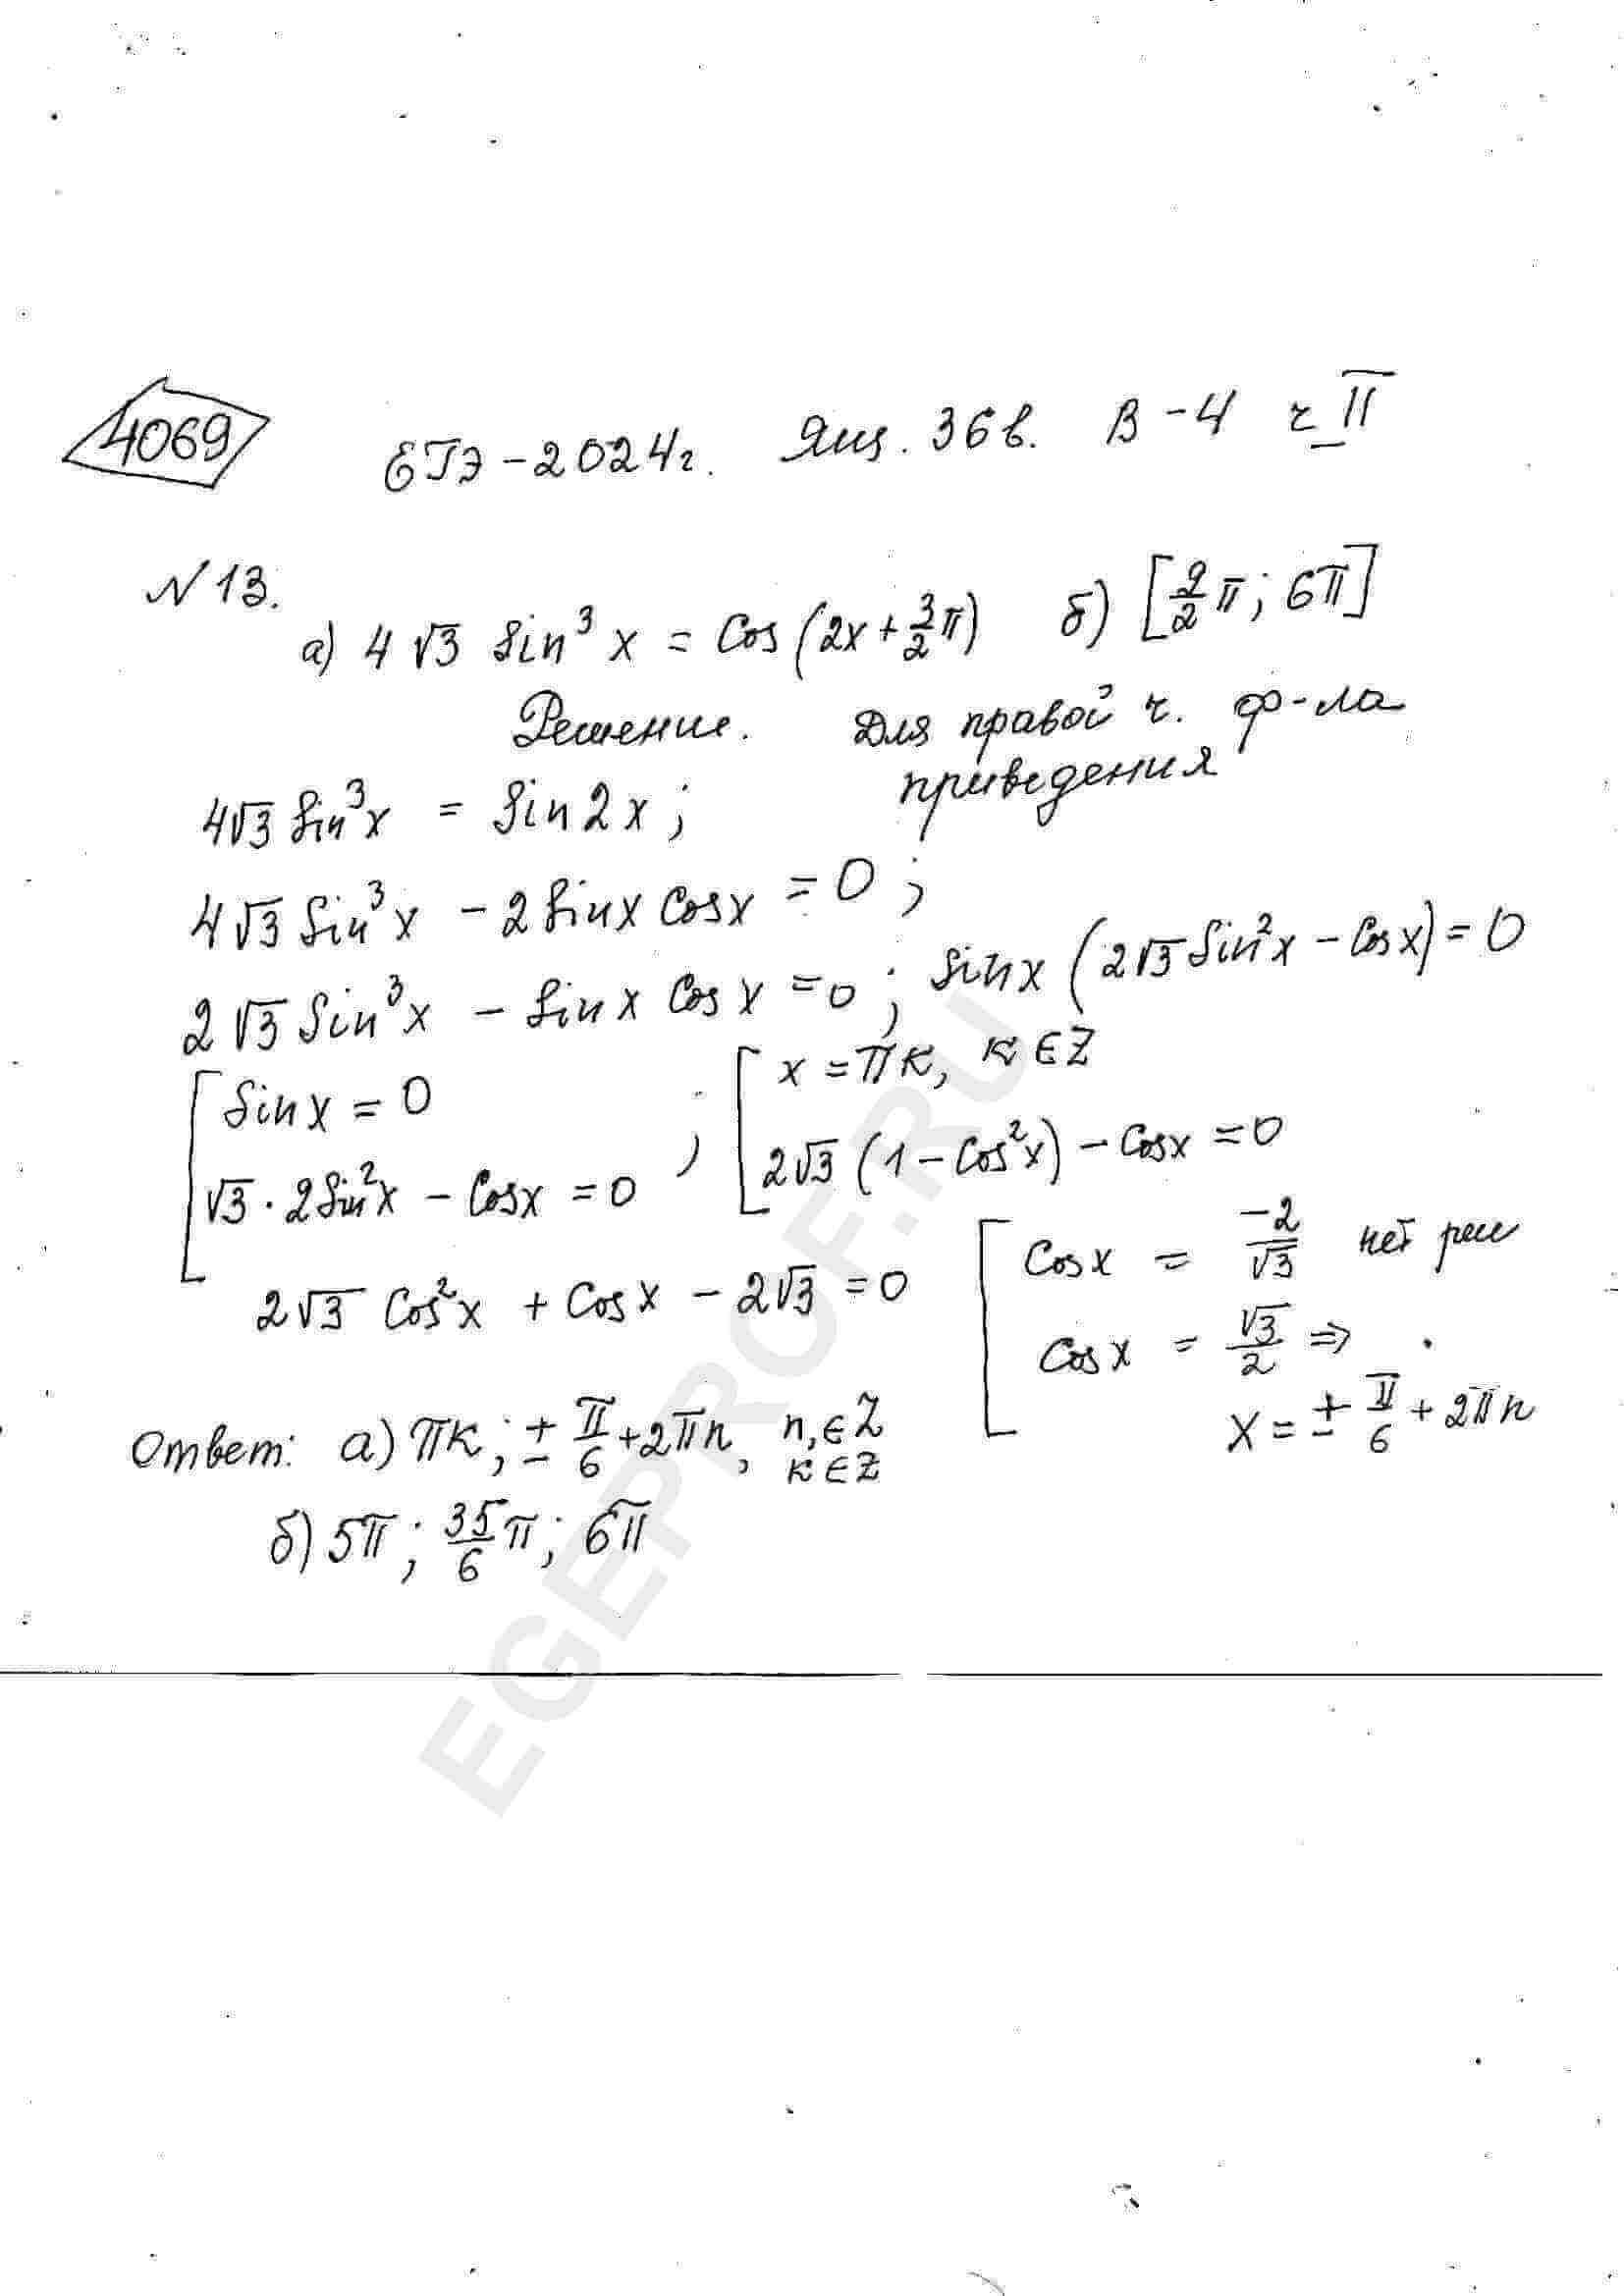 4069 ЕГЭ-2024г. Ящ. 36в. В-4 ч II
N 13.
а) 4√3 sin³x = cos(2x + 3/2 π) б) [9/2 π; 6π]
Решение. Для правой ч. ф-ла
приведения
4√3 sin³x = sin2x;
4√3 sin³x - 2sinx cosx = 0;
2√3 sin³x - sinx cosx = 0; sinx (2√3 sin²x - cosx) = 0
[ sinx = 0 ; [ x = πк, к ∈ Z
√3 · 2sin²x - cosx = 0 2√3 (1 - cos²x) - cosx = 0
2√3 cos²x + cosx - 2√3 = 0 [ cosx = -2/√3 нет реш
cosx = √3/2 ⇒
x = ± π/6 + 2πn
Ответ: а) πк; ± π/6 + 2πn, n, ∈ Z
к ∈ Z
б) 5π; 35/6 π; 6π
EGEPROF.RU